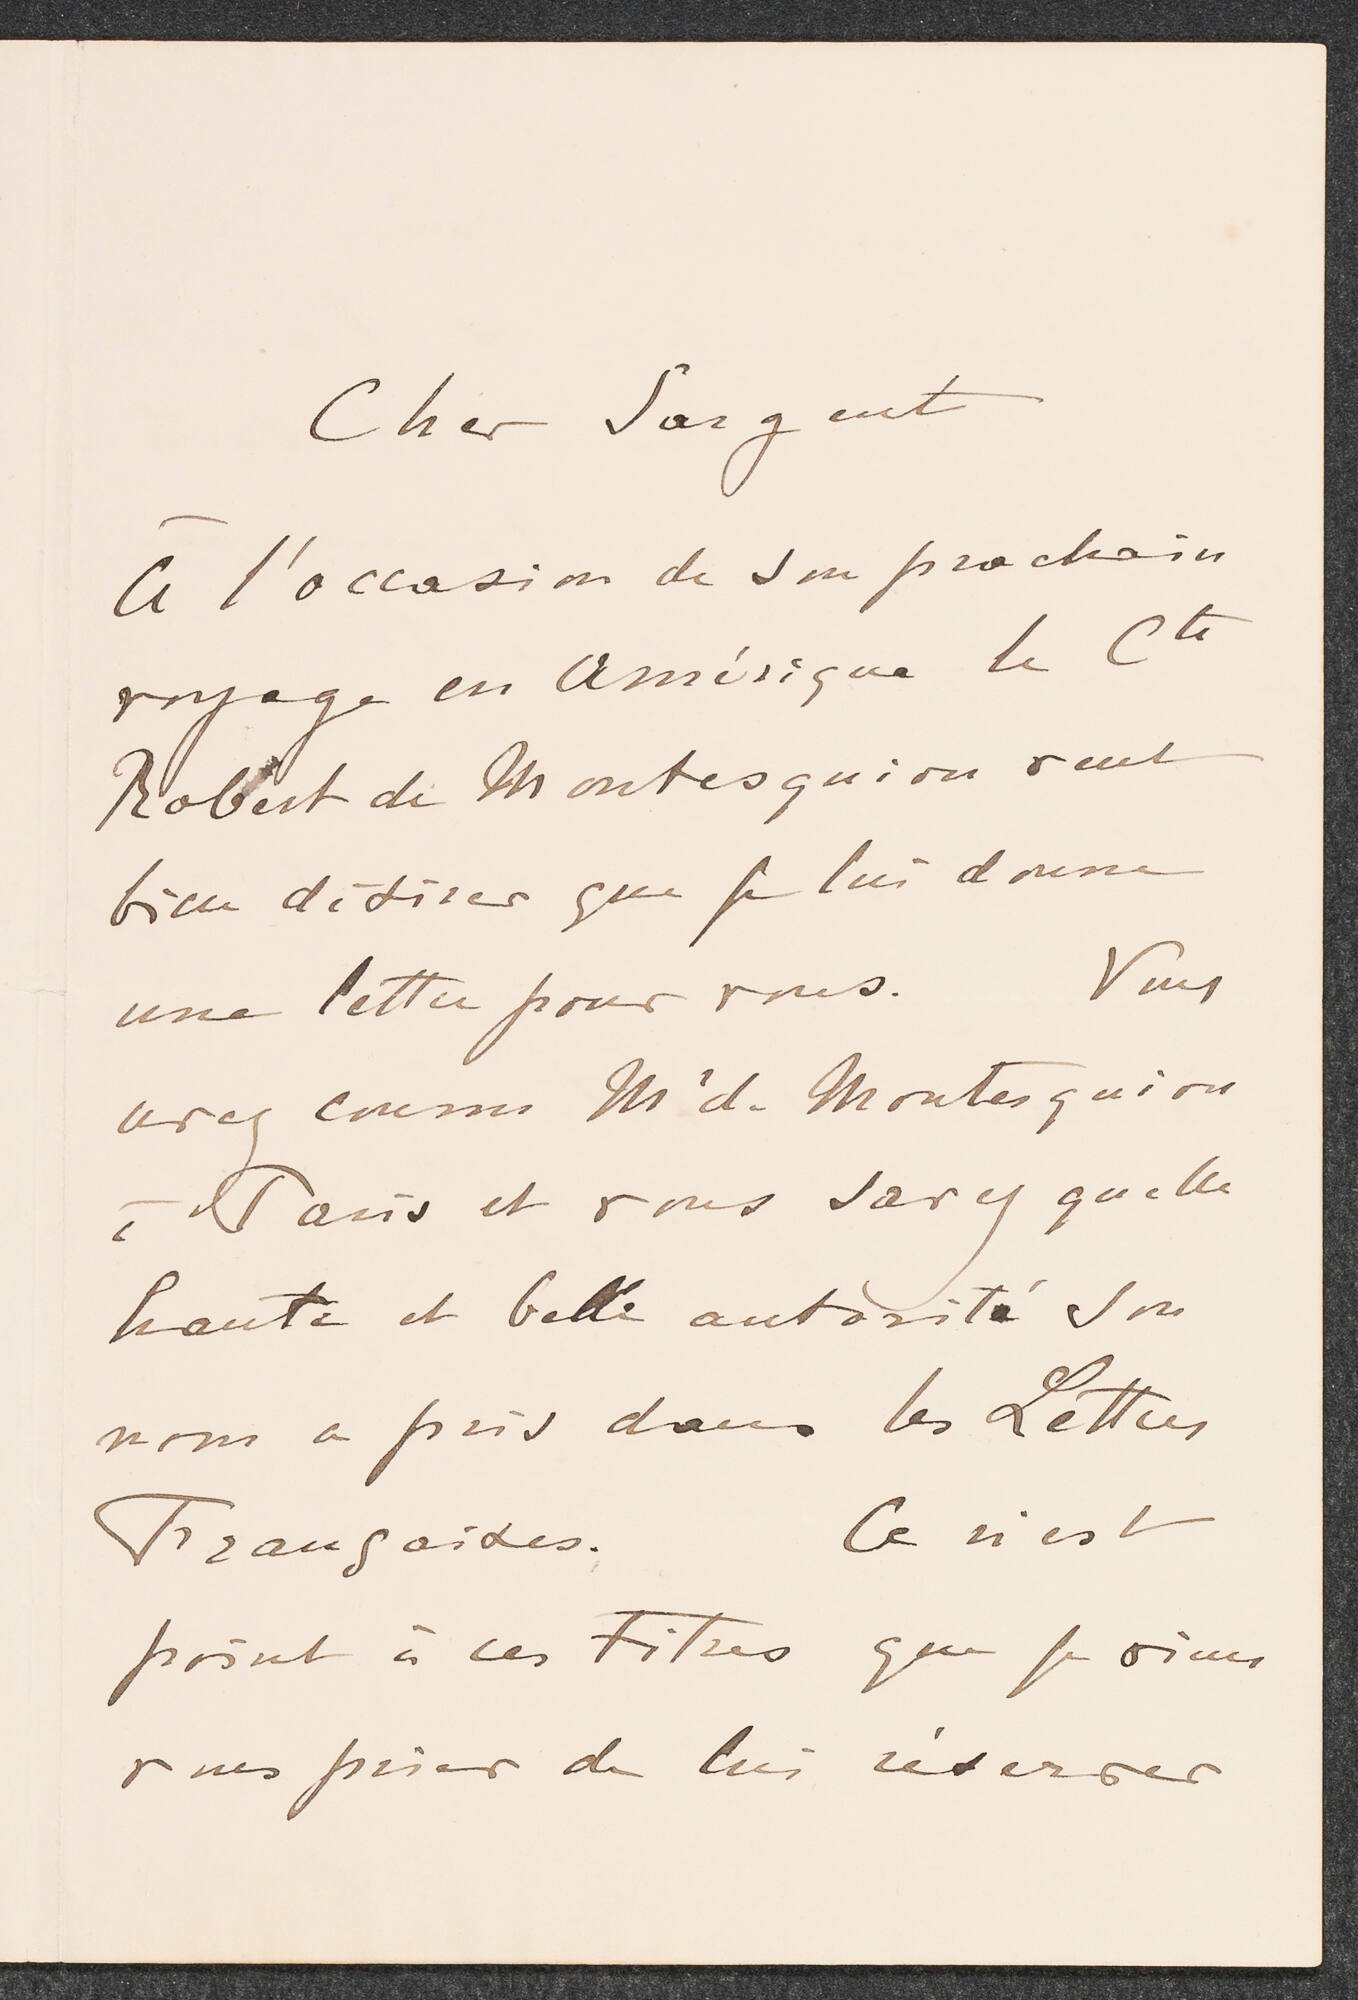 Cher Sargent
À l'occasion de son prochain
voyage en Amérique le Cte
Robert de Montesquiou veut
bien désirer que je lui donne
une lettre pour vous. Vous
avez connu Mr de Montesquiou
à Paris et vous savez quelle
haute et belle autorité son
nom a pris dans les Lettres
Françaises. Ce n'est
point à ces titres que je viens
vous prier de lui réserver